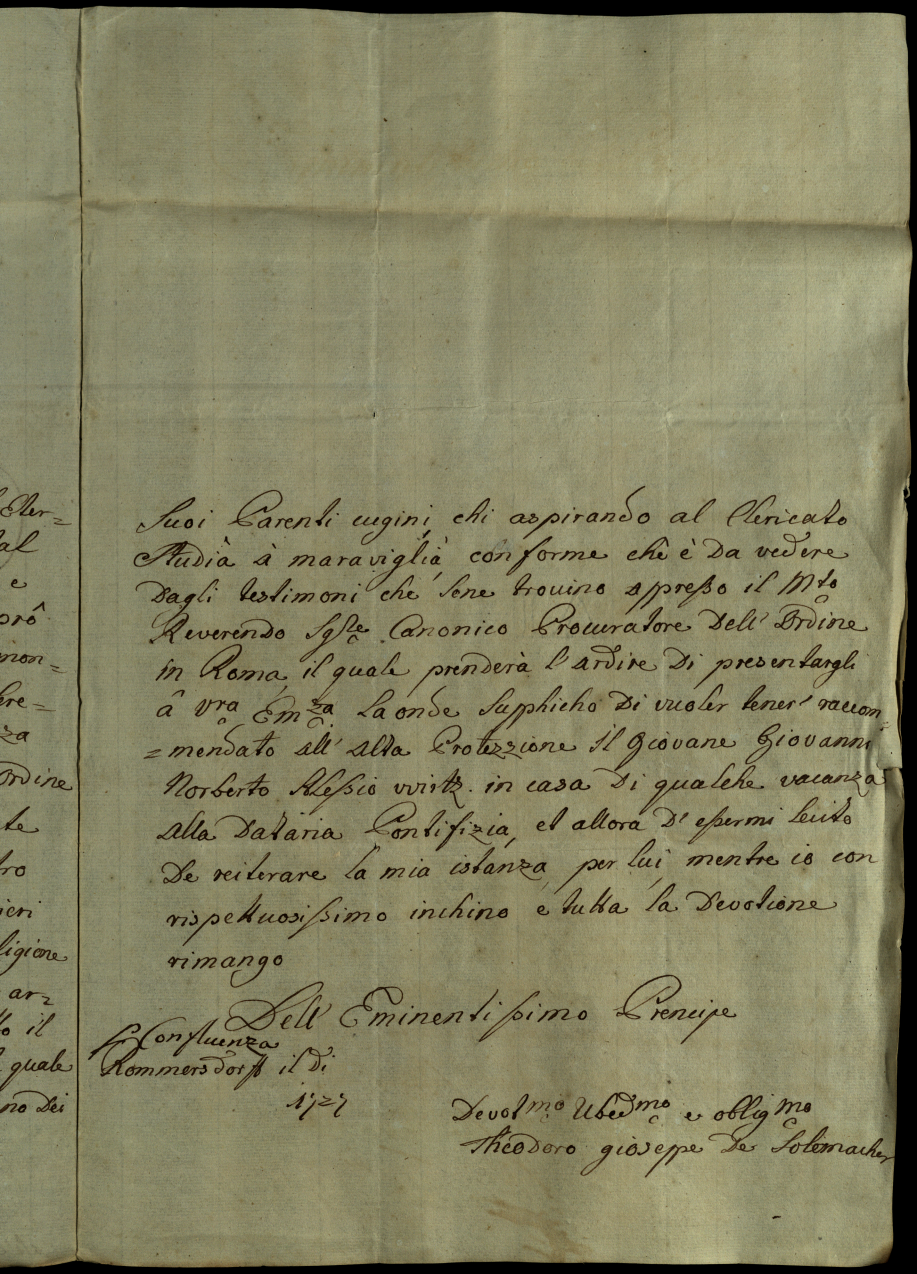 Eter=
tal
e
prô
mon=
ere=
za
Ordine
te
tro
ieri
ligione
ar=
to il
quale
no Dei
Suoi Parenti cugini, chi aspirando al Clericato
Studià à maraviglià, conforme chê è Da vedere
Dagli testimoni che sene trovino appreßo il Mto
Reverendo Sgre Canonico Procuratore Dell' Ordine
in Roma, il quale prenderà l'ardire Di presentargli
â vra Emza. La onde Supplicho Di vuoler tener' raccom=
=mendato all' alta Protezzione il Giovane Giovanni
Norberto Aleßio wirtz. in casa Di qualche vacanza
alla Dataria Pontifizia, et allora D' eßermi lecito
De reiterare la mia istanza, per lui, mentre io con
rispettuosißimo inchino e tutta la Devotione
rimango
Dell' Eminentißimo Prencipe
Confluenza
Rommersdorff il Di
1727
Devotmo Ubedmo e obligmo
Theodoro gioseppe De Solemacher